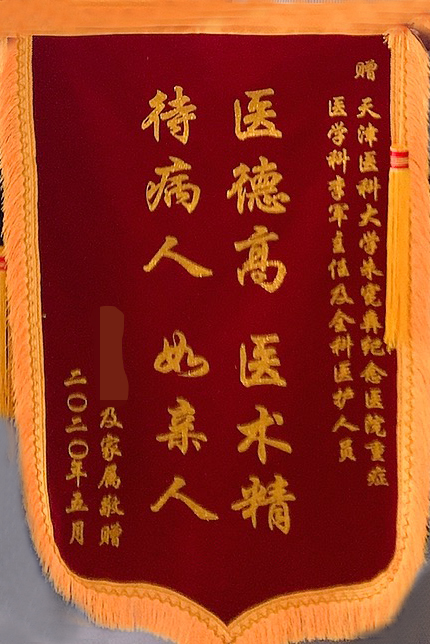 赠
天津医科大学朱宪彝纪念医院重症
医学科李军主任及全科医护人员
医德高 医术精
待病人 如亲人
及家属敬赠
二〇二〇年五月